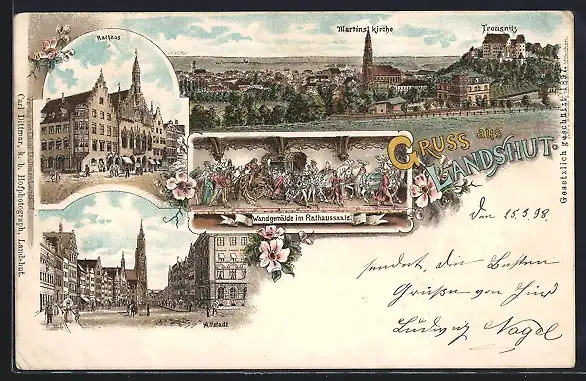 Rathaus
Martinskirche
Trausnitz
GRUSS aus
LANDSHUT.
Wandgemälde im Rathaussaale
Altstadt
Carl Dittmar, k. b. Hofphotograph, Landshut.
Gesetzlich geschützt 189
München.
Den 15.5.98.
sendet, die Besten
Grüße von hier
Ludwig Nagel